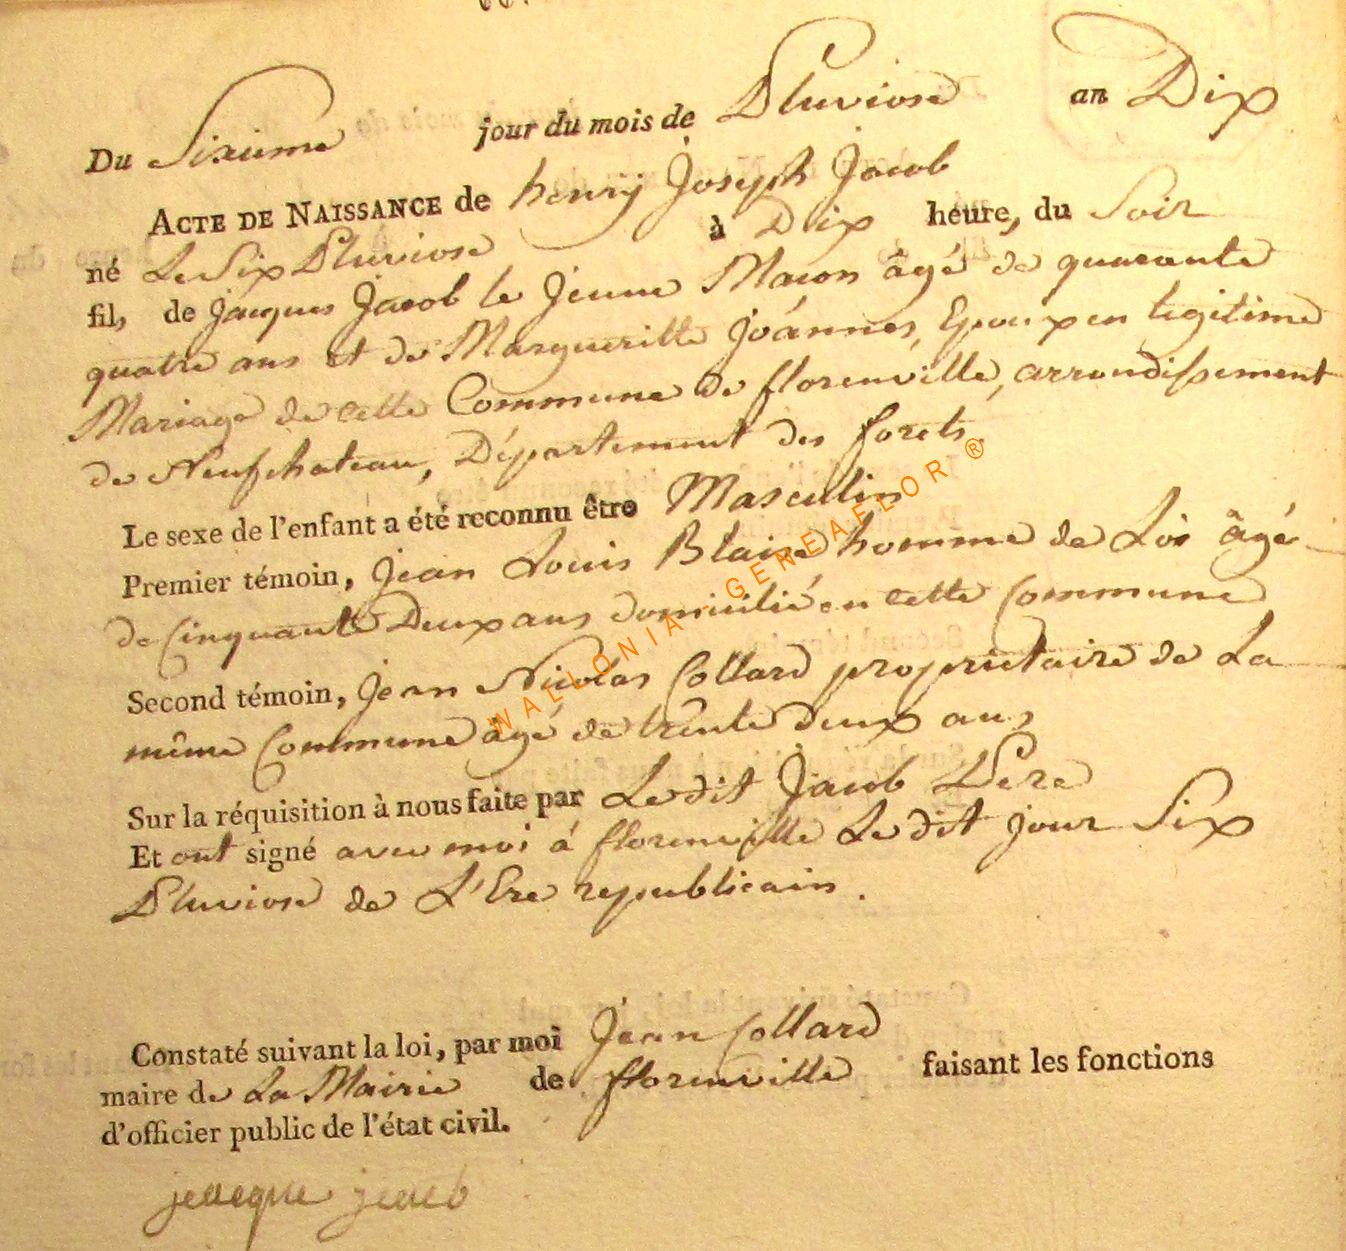 Du Sixieme jour du mois de Pluviose an Dix
ACTE DE NAISSANCE de henrÿ Joseph Jacob
né Le Six Pluviose à Dix heure, du Soir
fils de Jacques Jacob le Jeune Macon âgé de quarante
quatre ans et de Margueritte Joánnes, Epoux en legitime
Mariage de cette Commune de florenville, arrondissement
de Neufchateau, Département des forets.
Le sexe de l'enfant a été reconnu être Masculin
Premier témoin, Jean Louis Blaise homme de Loi âgé
de Cinquante Deux ans domicilié en cette Commune
Second témoin, Jean Nicolas Collard proprietaire de La
même Commune âgé de trente deux ans
Sur la réquisition à nous faite par Le dit Jacob Pere
Et ont signé avec moi á florenville Le dit jour Six
Pluviose de L'Ere republicain.
Constaté suivant la loi, par moi Jean Collard
maire de La Mairie de florenville faisant les fonctions
d'officier public de l'état civil.
jacque jacob
WALLONIA - GENEAFLOR ®